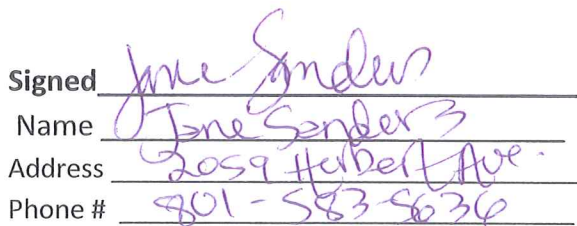 Signed Jane Sanders
Name Jane Sanders
Address 2059 Herbert Ave.
Phone # 801-583-5636